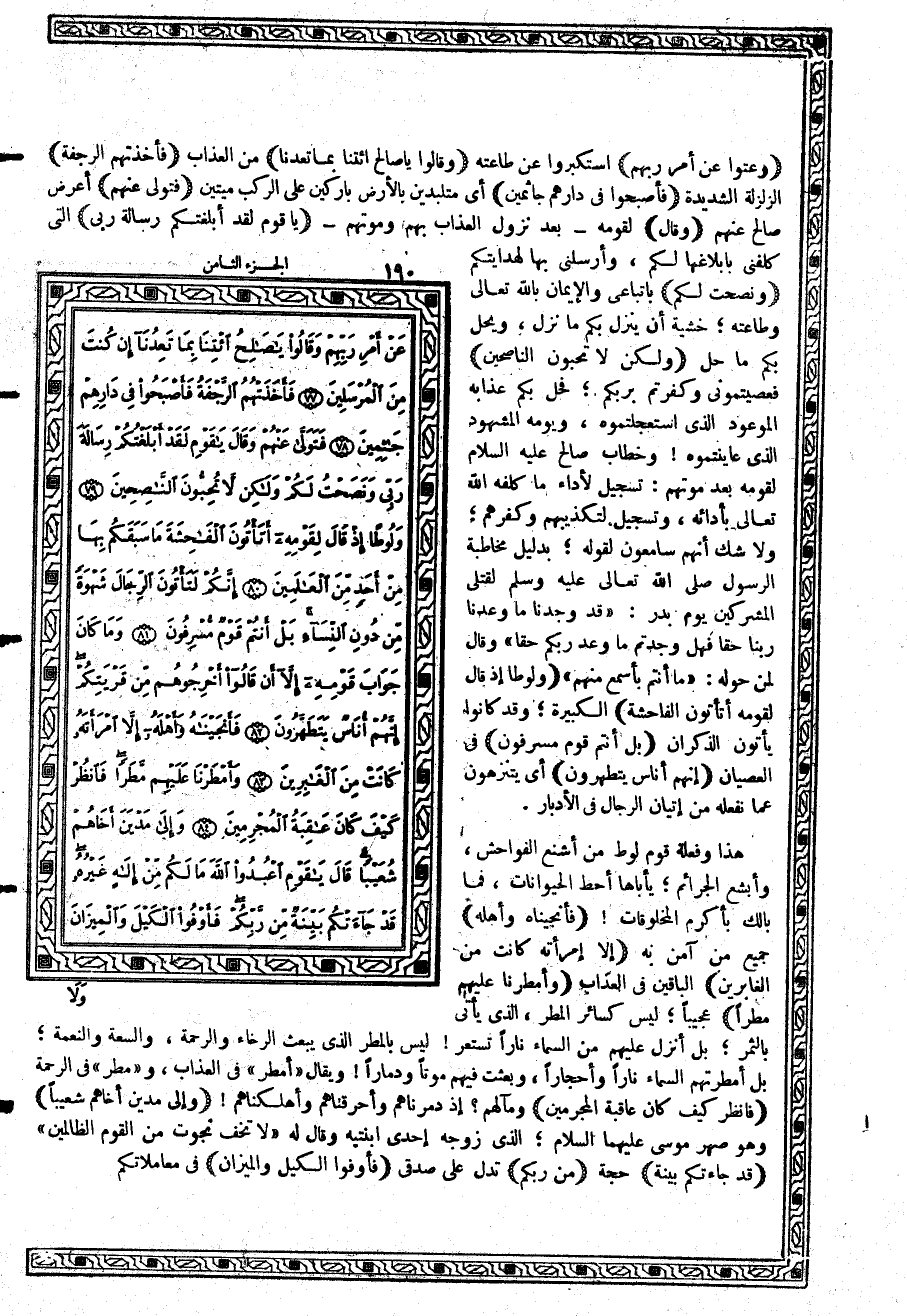 (وعتوا عن أمر ربهم) استكبروا عن طاعته (وقالوا ياصالح ائتنا بما تعدنا) من العذاب (فأخذتهم الرجفة)
الزلزلة الشديدة (فأصبحوا فى دارهم جاثمين) أى متلبدين بالأرض باركين على الركب ميتين (فتولى عنهم) أعرض
صالح عنهم (وقال) لقومه ــ بعد نزول العذاب بهم وموتهم ــ (ياقوم لقد أبلغتكم رسالة ربى) التى
كلفنى بابلاغها لكم ، وأرسلنى بها لهدايتكم
(ونصحت لكم) باتباعى والإيمان بالله تعالى
وطاعته ؛ خشية أن ينزل بكم ما نزل ، ويحل
بكم ما حل (ولكن لا تحبون الناصحين)
فعصيتمونى وكفرتم بربكم ؛ فحل بكم عذابه
الموعود الذى استعجلتموه ، ويومه المشهود
الذى عاينتموه ! وخطاب صالح عليه السلام
لقومه بعد موتهم : تسجيل لأداء ما كلفه الله
تعالى بأدائه ، وتسجيل لتكذيبهم وكفرهم ؛
ولا شك أنهم سامعون لقوله ؛ بدليل مخاطبة
الرسول صلى الله تعالى عليه وسلم لقتلى
المشركين يوم بدر : «قد وجدنا ما وعدنا
ربنا حقا فهل وجدتم ما وعد ربكم حقا» وقال
لمن حوله : «ما أنتم بأسمع منهم» (ولوطا إذ قال
لقومه أتأتون الفاحشة) الكبيرة ؛ وقد كانوا
يأتون الذكران (بل أنتم قوم مسرفون) فى
العصيان (إنهم أناس يتطهرون) أى يتنزهون
عما نفعله من إتيان الرجال فى الأدبار .
هذا وفعلة قوم لوط من أشنع الفواحش ،
وأبشع الجرائم ؛ يأباها أحط الحيوانات ، فما
بالك بأكرم المخلوقات ! (فأنجيناه وأهله)
جميع من آمن به (إلا إمرأته كانت من
الغابرين) الباقين فى العذاب (وأمطرنا عليهم
مطراً) عجيباً ؛ ليس كسائر المطر ، الذى يأتى
بالثمر ؛ بل أنزل عليهم من السماء ناراً تستعر ! ليس بالمطر الذى يبعث الرخاء والرحمة ، والسعة والنعمة ؛
بل أمطرتهم السماء ناراً وأحجاراً ، وبعثت فيهم موتاً ودماراً ! ويقال «أمطر» فى العذاب ، و «مطر» فى الرحمة
(فانظر كيف كان عاقبة المجرمين) ومآلهم ؟ إذ دمرناهم وأحرقناهم وأهلكناهم ! (وإلى مدين أخاهم شعيباً)
وهو صهر موسى عليهما السلام ؛ الذى زوجه إحدى ابنتيه وقال له «لا تخف نجوت من القوم الظالمين»
(قد جاءتكم بينة) حجة (من ربكم) تدل على صدقى (فأوفوا الكيل والميزان) فى معاملاتكم
١٩٠ الجزء الثامن
عَنْ أَمْرِ رَبِّهِمْ وَقَالُوا۟ يَـٰصَـٰلِحُ ٱئْتِنَا بِمَا تَعِدُنَآ إِن كُنتَ
مِنَ ٱلْمُرْسَلِينَ ٧٧ فَأَخَذَتْهُمُ ٱلرَّجْفَةُ فَأَصْبَحُوا۟ فِى دَارِهِمْ
جَـٰثِمِينَ ٧٨ فَتَوَلَّىٰ عَنْهُمْ وَقَالَ يَـٰقَوْمِ لَقَدْ أَبْلَغْتُكُمْ رِسَالَةَ
رَبِّى وَنَصَحْتُ لَكُمْ وَلَـٰكِن لَّا تُحِبُّونَ ٱلنَّـٰصِحِينَ ٧٩
وَلُوطًا إِذْ قَالَ لِقَوْمِهِۦٓ أَتَأْتُونَ ٱلْفَـٰحِشَةَ مَا سَبَقَكُم بِهَا
مِنْ أَحَدٍ مِّنَ ٱلْعَـٰلَمِينَ ٨٠ إِنَّكُمْ لَتَأْتُونَ ٱلرِّجَالَ شَهْوَةً
مِّن دُونِ ٱلنِّسَآءِ ۚ بَلْ أَنتُمْ قَوْمٌ مُّسْرِفُونَ ٨١ وَمَا كَانَ
جَوَابَ قَوْمِهِۦٓ إِلَّآ أَن قَالُوٓا۟ أَخْرِجُوهُم مِّن قَرْيَتِكُمْ ۖ
إِنَّهُمْ أُنَاسٌ يَتَطَهَّرُونَ ٨٢ فَأَنجَيْنَـٰهُ وَأَهْلَهُۥٓ إِلَّا ٱمْرَأَتَهُۥ
كَانَتْ مِنَ ٱلْغَـٰبِرِينَ ٨٣ وَأَمْطَرْنَا عَلَيْهِم مَّطَرًا ۖ فَٱنظُرْ
كَيْفَ كَانَ عَـٰقِبَةُ ٱلْمُجْرِمِينَ ٨٤ وَإِلَىٰ مَدْيَنَ أَخَاهُمْ
شُعَيْبًا ۗ قَالَ يَـٰقَوْمِ ٱعْبُدُوا۟ ٱللَّهَ مَا لَكُم مِّنْ إِلَـٰهٍ غَيْرُهُۥ ۖ
قَدْ جَآءَتْكُم بَيِّنَةٌ مِّن رَّبِّكُمْ ۖ فَأَوْفُوا۟ ٱلْكَيْلَ وَٱلْمِيزَانَ
وَلَا